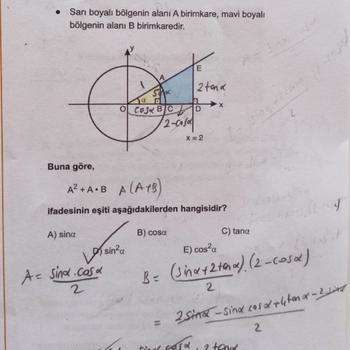 • Sarı boyalı bölgenin alanı A birimkare, mavi boyalı
bölgenin alanı B birimkaredir.
y
A
E
1
sinα
2tanα
α
O
cosα
B
C
D
x
2-cosα
x = 2
Buna göre,
A² + A • B A(A+B)
ifadesinin eşiti aşağıdakilerden hangisidir?
A) sinα B) cosα C) tanα
D) sin²α E) cos²α
A = sinα.cosα / 2
B = (sinα+2tanα).(2-cosα) / 2
= 2sinα - sinα cosα + 4tanα - 2sinα / 2